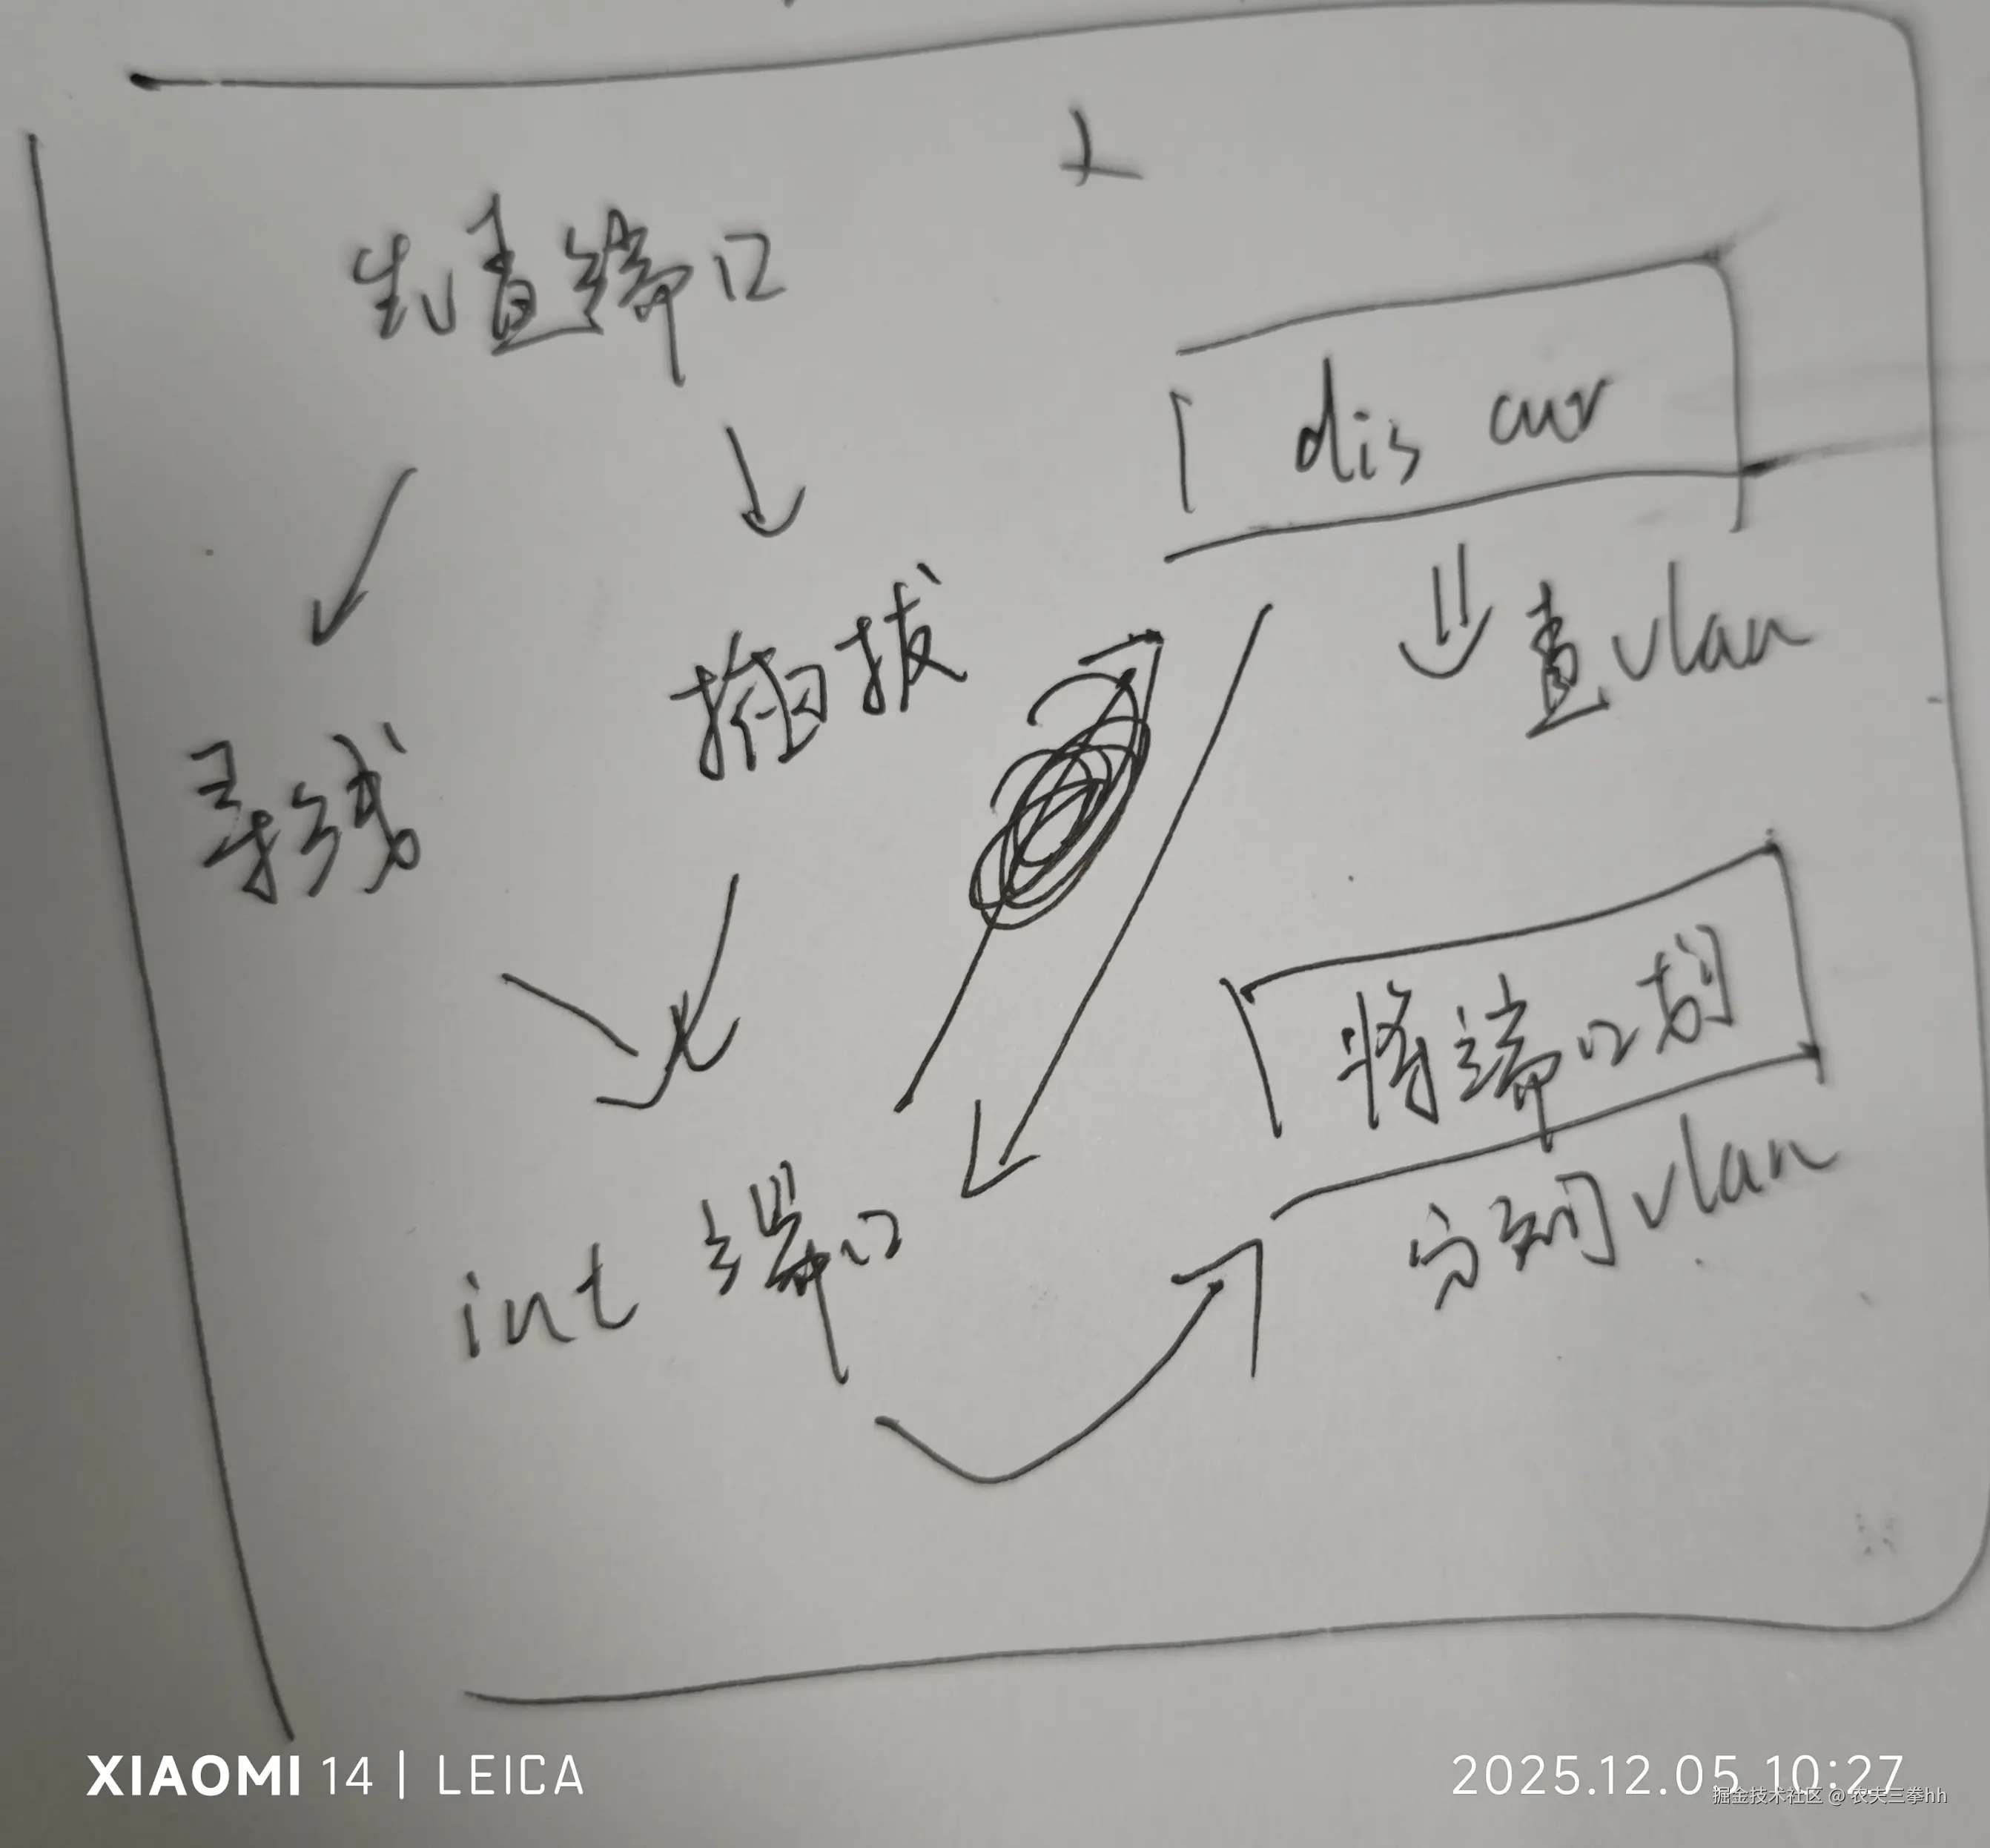 先查端口
dis cur
查vlan
插拔
寻线
将端口划
分到vlan
int 端口
XIAOMI 14 | LEICA
2025.12.05 10:27
掘金技术社区 @ 农夫三拳hh